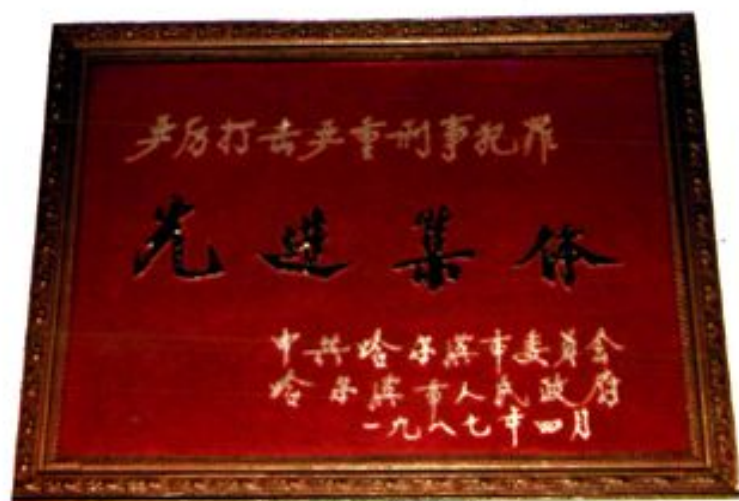 严厉打击严重刑事犯罪
先进集体
中共哈尔滨市委员会
哈尔滨市人民政府
一九八七年四月